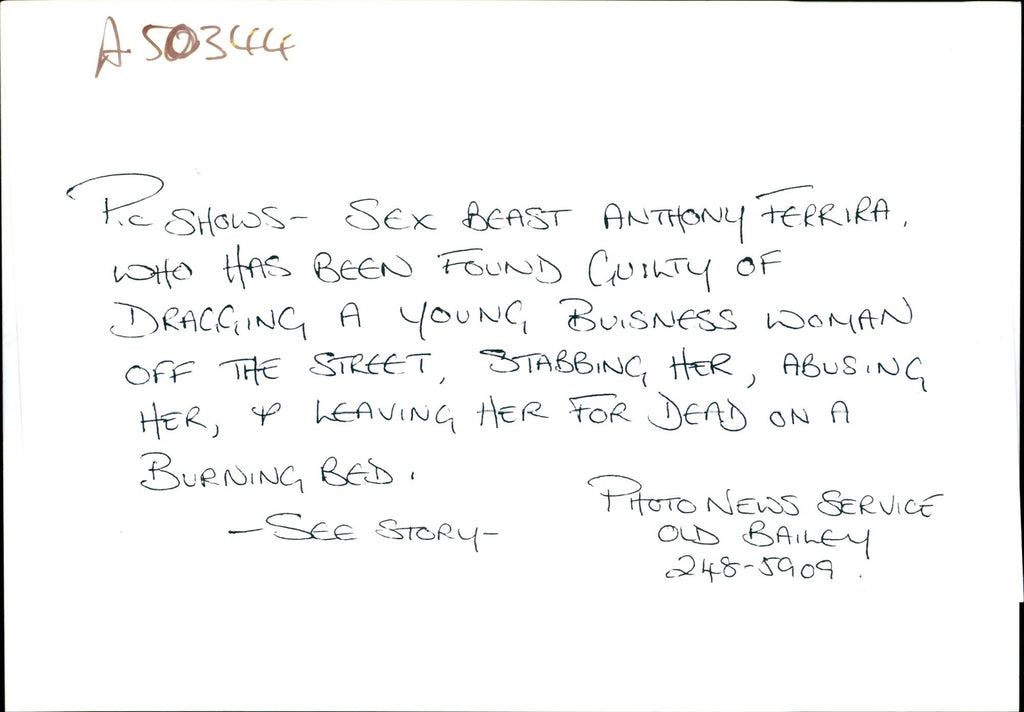 A50344
Pic SHOWS- SEX BEAST ANTHONY FERRIRA,
WHO HAS BEEN FOUND GUILTY OF
DRAGGING A YOUNG BUISNESS WOMAN
OFF THE STREET, STABBING HER, ABUSING
HER, & LEAVING HER FOR DEAD ON A
BURNING BED.
-SEE STORY-
PHOTO NEWS SERVICE
OLD BAILEY
248-5909.